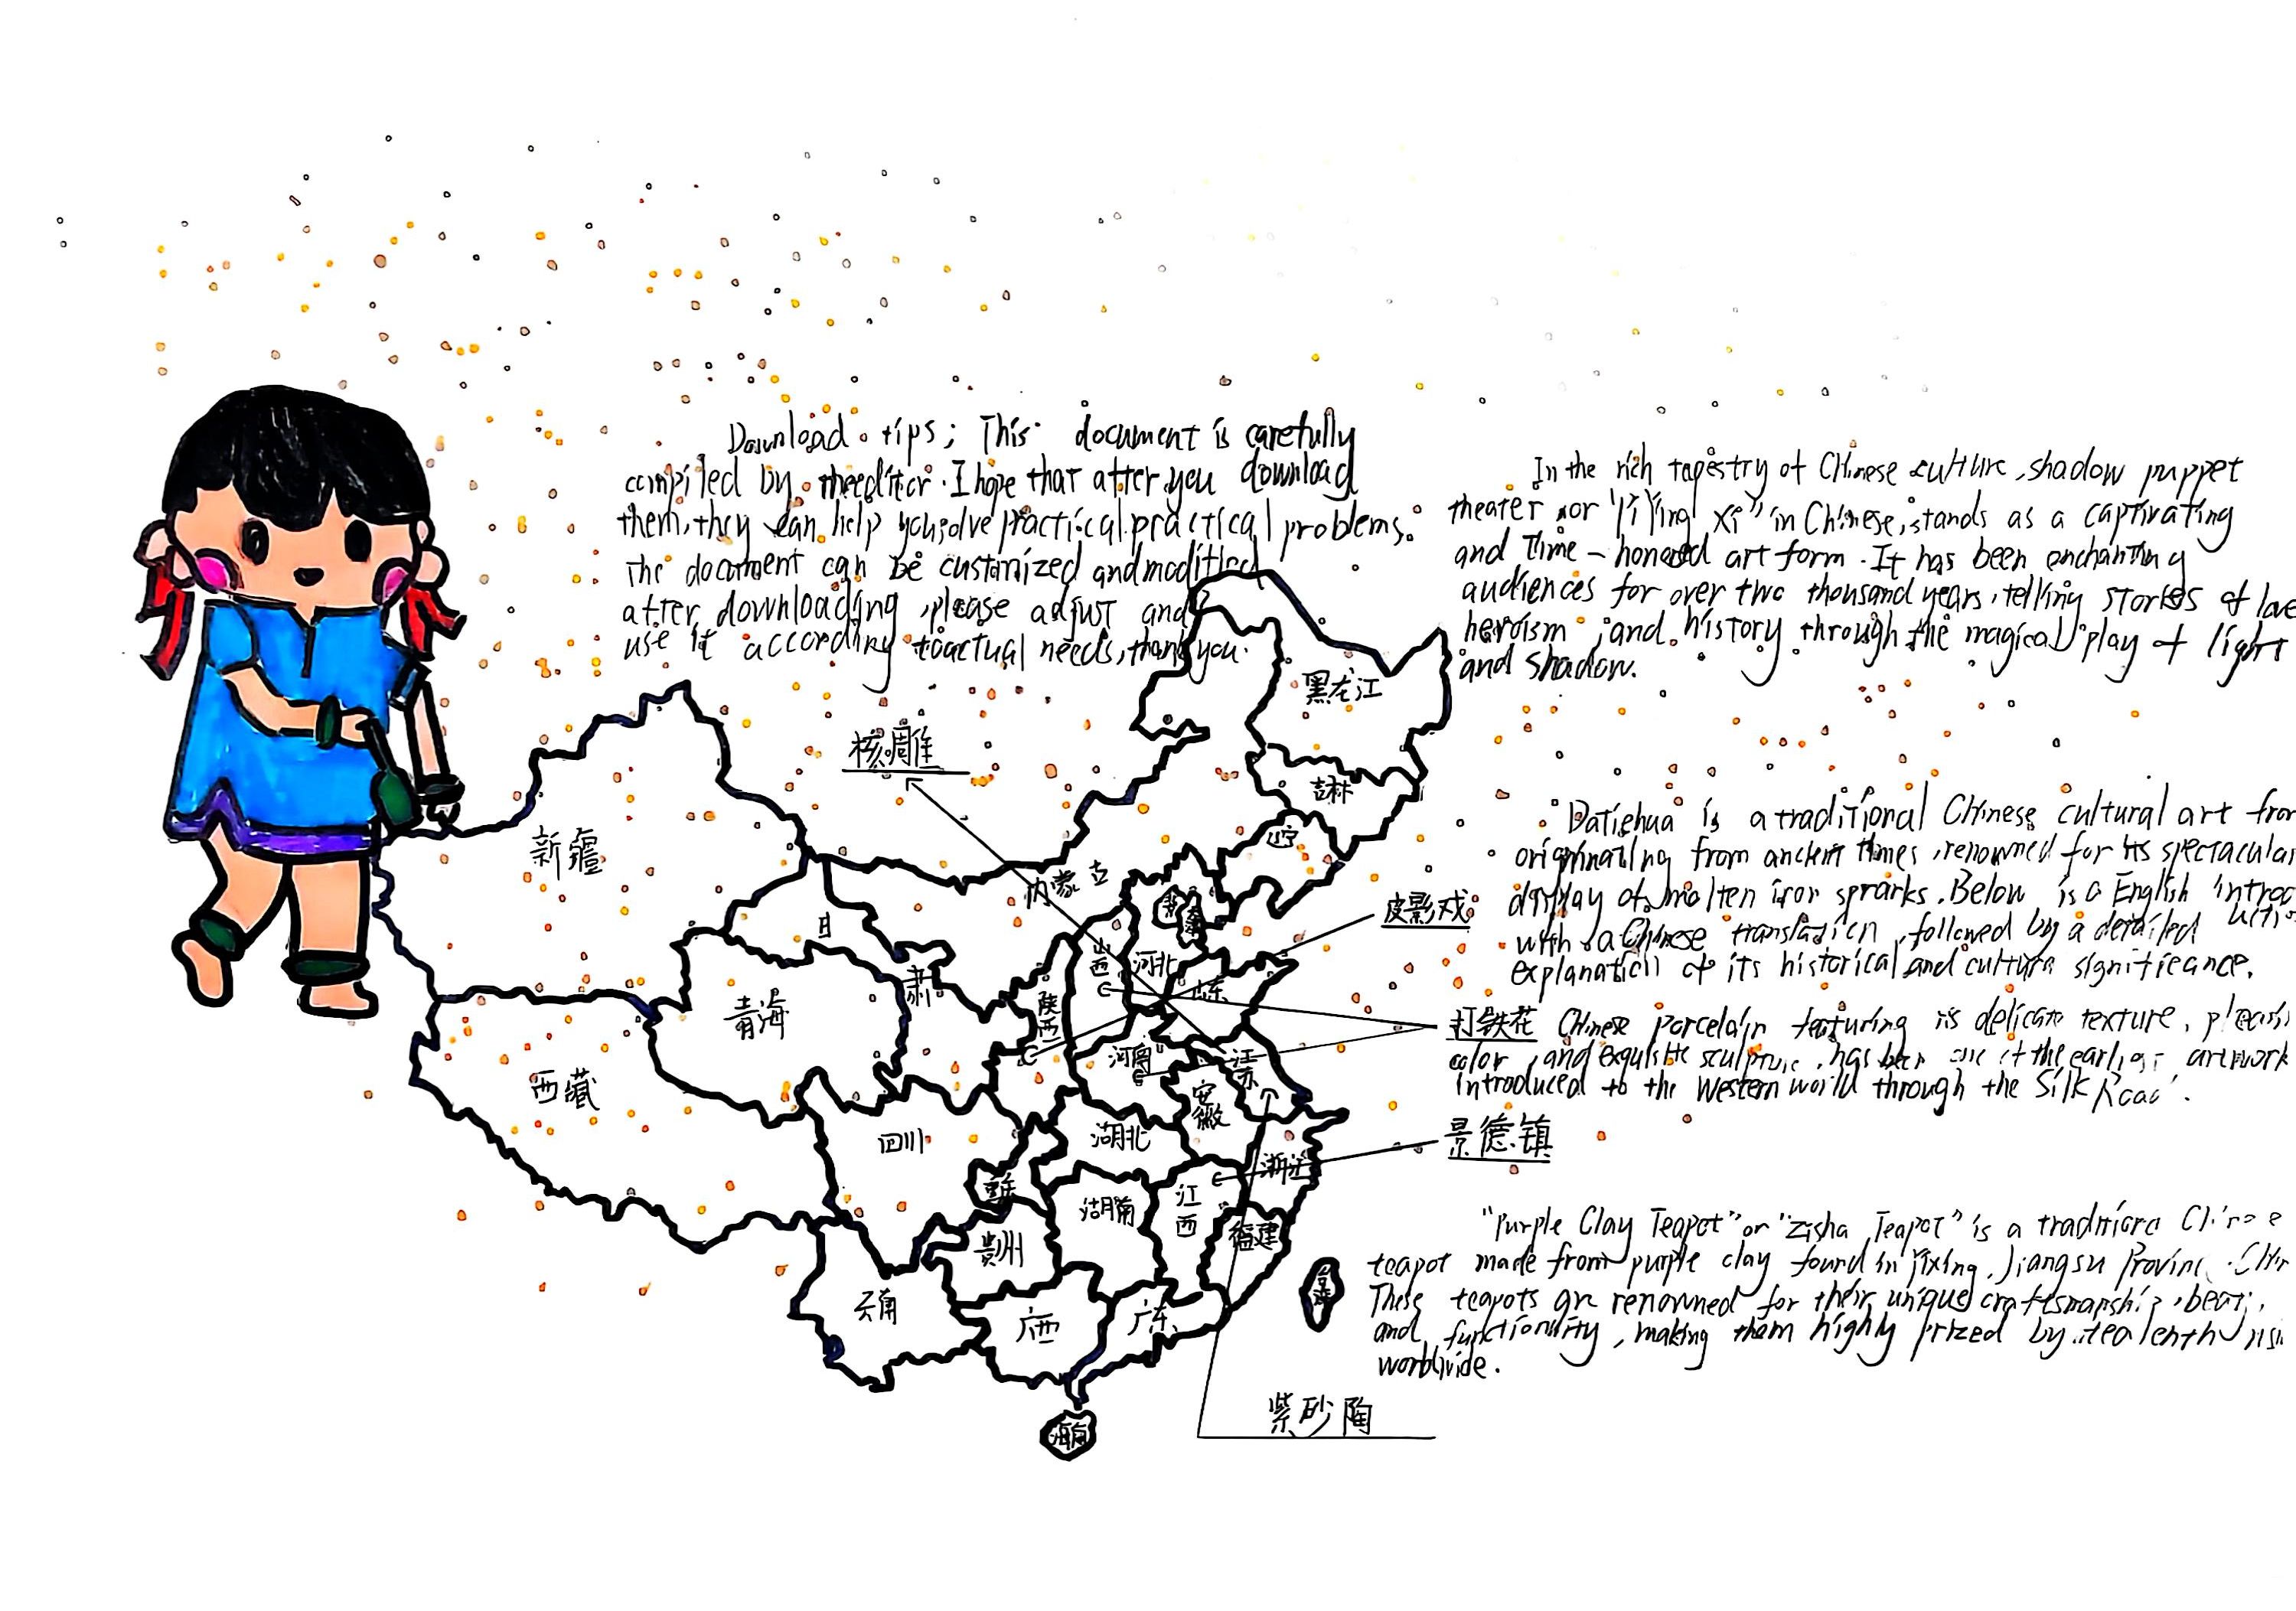 Download tips; This document is carefully
compiled by theeditor. I hope that after you download
them, they can help yousolve practical practical problems.
The document can be customized and modified
after downloading, please adjust and
use it according toactual needs, thank you.
In the rich tapestry of Chinese culture, shadow puppet
theater, or "Pi Ying Xi" in Chinese, stands as a captivating
and time-honored art form. It has been enchanting
audiences for over two thousand years, telling stories of love
heroism, and history through the magical play of light
and shadow.
Datiehua is a traditional Chinese cultural art
originating from ancient times, renowned for its spectacular
display of molten iron sprarks. Below is a English
with a Chinese translation, followed by a detailed
explanation of its historical and cultura significance.
打铁花 Chinese porcelain featuring is delicate texture,
color, and exquisite sculpture, has been one of the earliest artwork
introduced to the Western world through the Silk Road.
"Purple Clay Teapot" or "Zisha Teapot" is a
teapot made from purple clay found in Yixing, Jiangsu
These teapots are renowned for their unique craftsmanship,
and functionality, making them highly prized by tea
worldwide.
核雕
皮影戏
景德镇
紫砂陶
黑龙江
吉林
辽宁
内蒙古
新疆
甘
肃
青海
西藏
山西
河北
山东
陕西
河南
江苏
安徽
四川
湖北
浙江
湖南
江西
福建
贵州
云南
广西
广东
台湾
海南